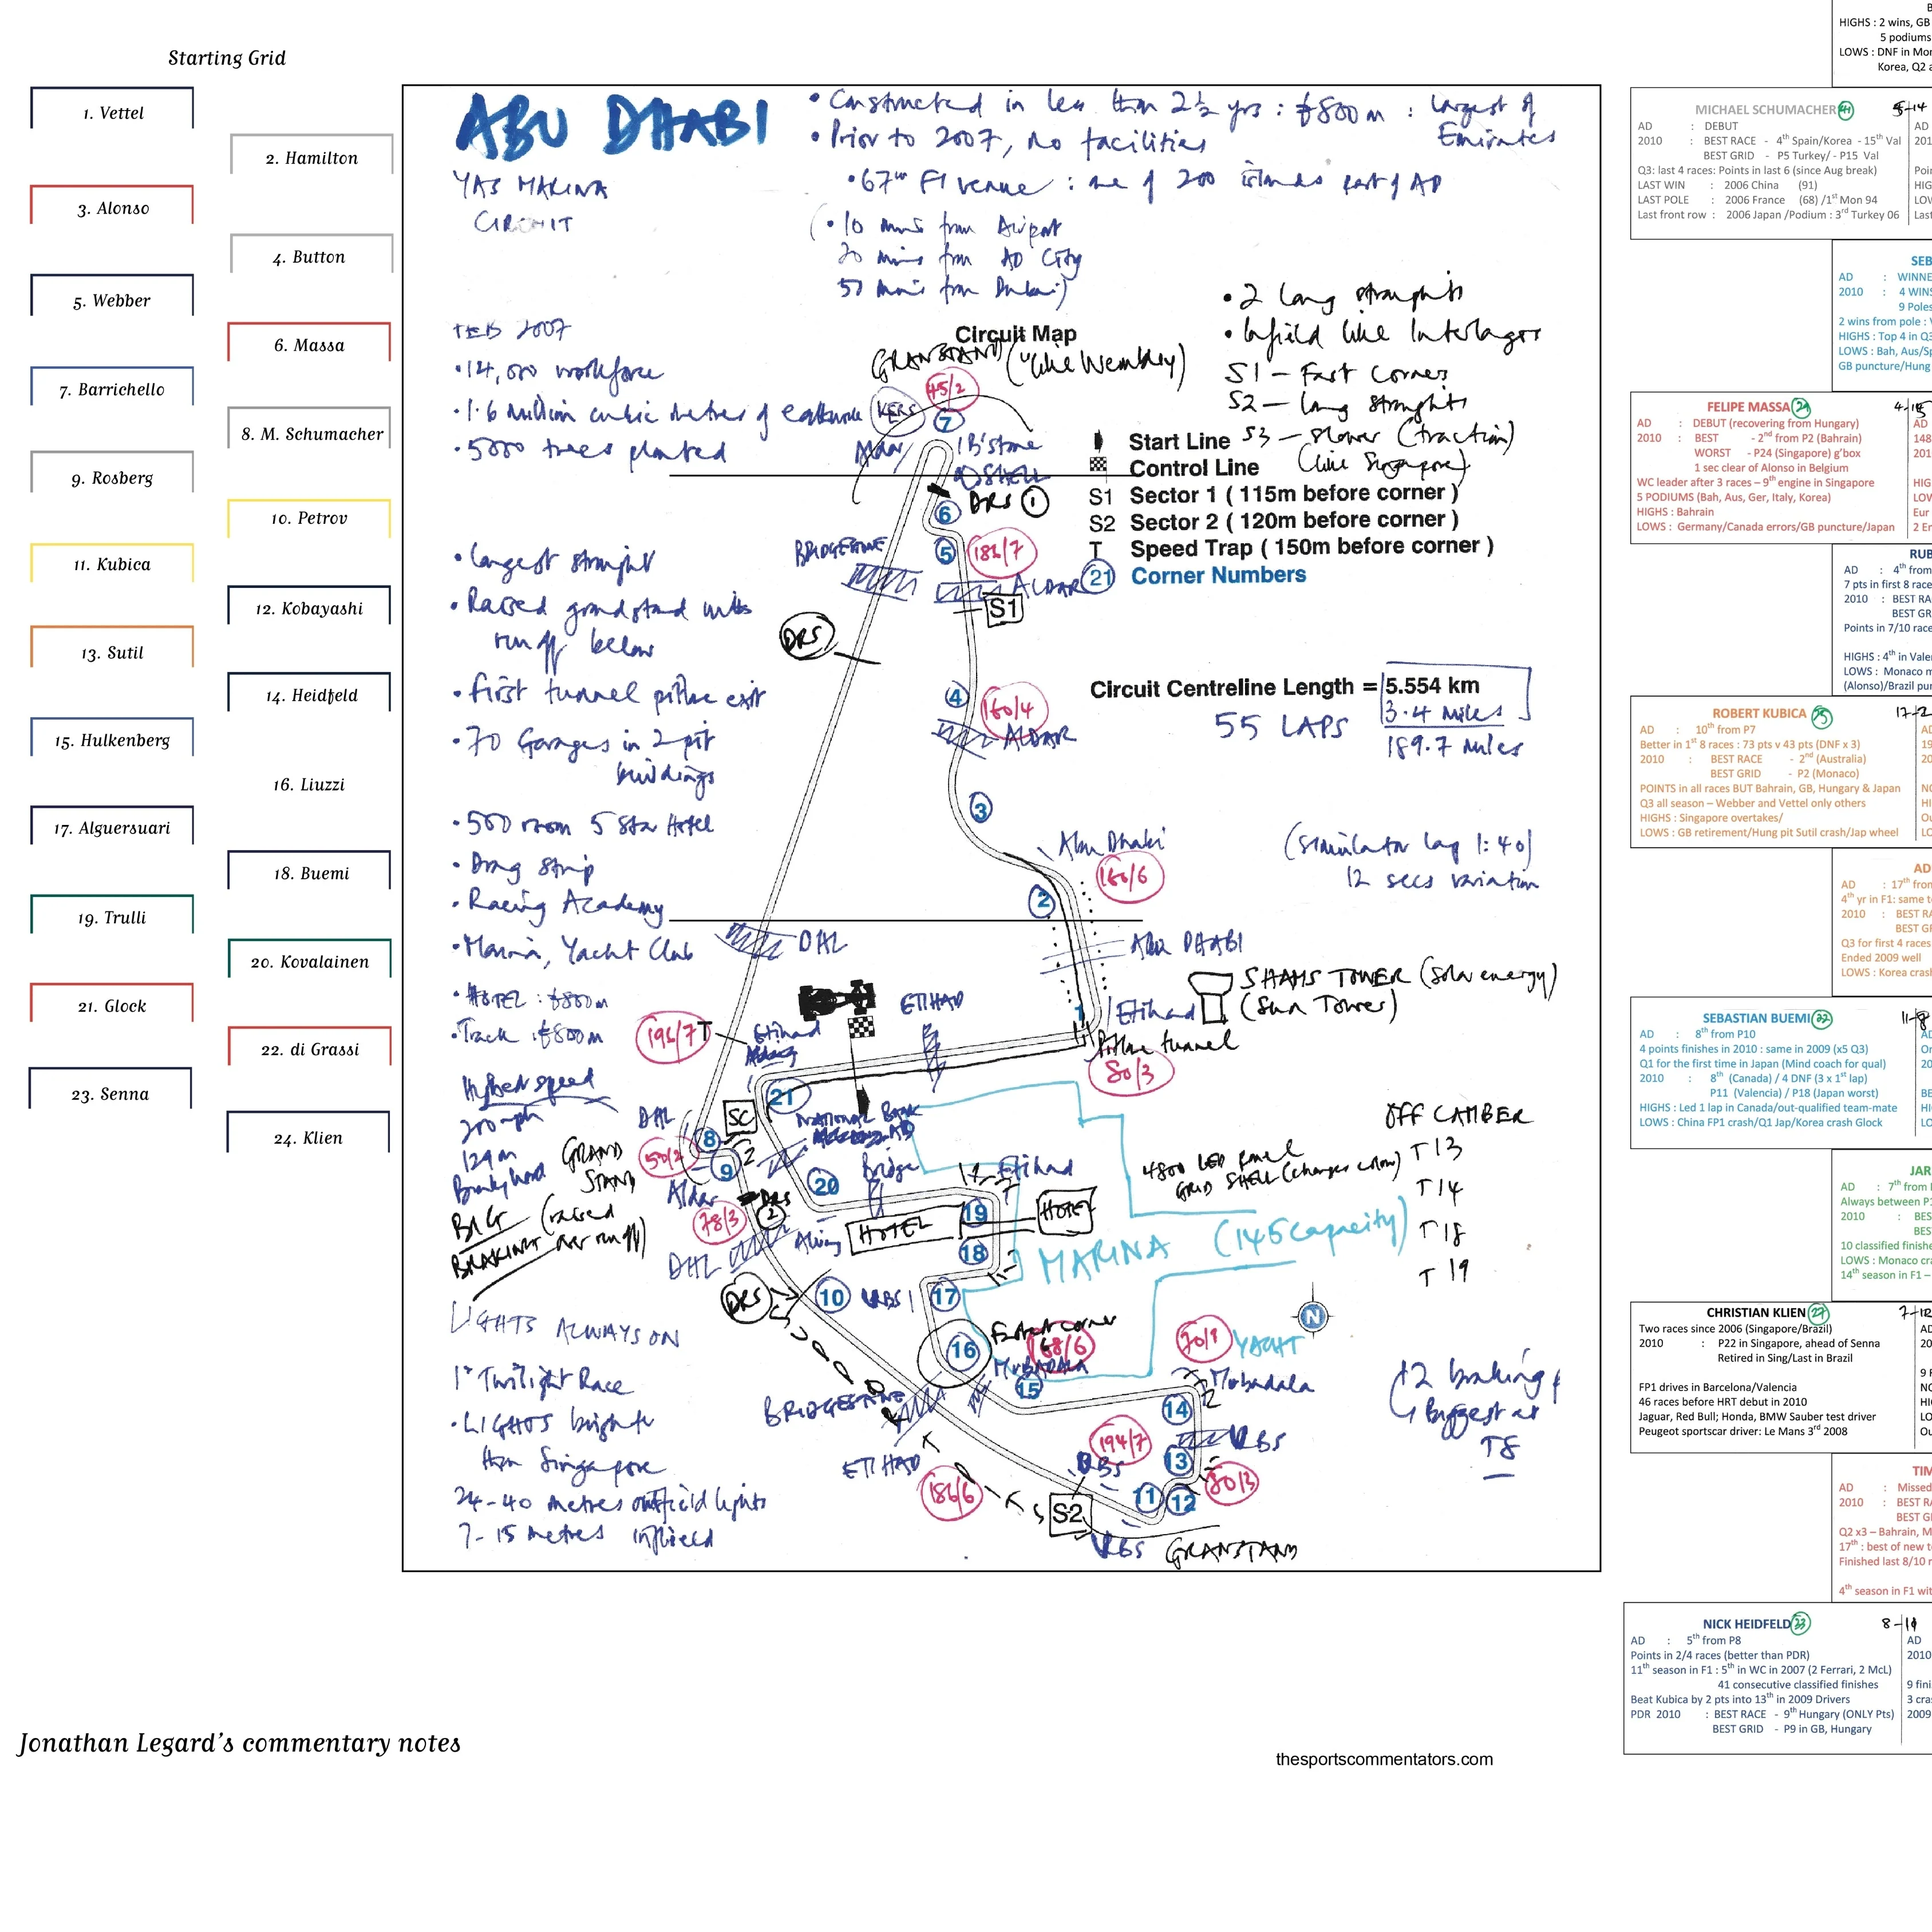 Starting Grid
1. Vettel
2. Hamilton
3. Alonso
4. Button
5. Webber
6. Massa
7. Barrichello
8. M. Schumacher
9. Rosberg
10. Petrov
11. Kubica
12. Kobayashi
13. Sutil
14. Heidfeld
15. Hulkenberg
16. Liuzzi
17. Alguersuari
18. Buemi
19. Trulli
20. Kovalainen
21. Glock
22. di Grassi
23. Senna
24. Klien
Jonathan Legard's commentary notes
ABU DHABI
YAS MARINA
CIRCUIT
• Constructed in less than 2½ yrs : £800m : largest of
Emirates
• Prior to 2007, no facilities
• 67th F1 venue : one of 200 islands part of AD
(• 10 mins from Airport
20 mins from AD City
50 mins from Dubai)
• 2 long straights
• Infield like Interlagos
S1 – Fast corners
S2 – long straights
S3 – slower (traction)
(like Singapore)
FEB 2007
• 14,000 workforce
• 1.6 million cubic metres of earthwork
• 5000 trees planted
Circuit Map
GRANSTAND ("like Wembley")
45/2
KERS
7
Aldar
B'stone
SHELL
DRS 1
6
5
186/7
Start Line
Control Line
S1 Sector 1 ( 115m before corner )
S2 Sector 2 ( 120m before corner )
T Speed Trap ( 150m before corner )
21 Corner Numbers
• Longest straight
• Raised grandstand with
run off below
• First tunnel pitlane exit
• 70 Garages in 2 pit
buildings
• 500 room 5 star Hotel
• Drag Strip
• Racing Academy
• Marina, Yacht Club
• HOTEL : £800m
• Track : £800m
BRIDGESTONE
ALDAR
S1
DRS
4
160/4
ALDAR
Circuit Centreline Length = 5.554 km
3.4 miles
55 LAPS
189.7 miles
3
Abu Dhabi
160/6
2
(Simulator lap 1:40)
12 secs variation
DHL
ABU DHABI
SHAMS TOWER (Solar energy)
(Sun Tower)
1
Etihad
Pitlane tunnel
80/3
ETIHAD
196/7
T
Etihad
Highest speed
200mph
129m
GRAND
STAND
(raised
over run off)
BIG
BRAKING
DHL
SC
21
NATIONAL BANK
8
50/2
9
20
Bridge
Etihad
Aldar
DRS
2
78/3
HOTEL
19
HOTEL
18
DHL
4800 LED panel
GRID SHELL (changes colour)
OFF CAMBER
T13
T14
T18
T19
MARINA (145 capacity)
DRS
10
RBS
17
LIGHTS ALWAYS ON
1st Twilight Race
• LIGHTS brighter
than Singapore
24-40 metres outfield lights
7-15 metres infield
Fastest corner
16
168/6
MUBADALA
15
70/1
YACHT
Mubadala
N
14
BRIDGESTONE
ETIHAD
186/6
194/7
RBS
13
RBS
80/3
11
12
S2
RBS GRANSTAND
12 braking
Biggest at
T8
thesportscommentators.com
HIGHS : 2 wins, GB
5 podiums
LOWS : DNF in Mon
Korea, Q2 a
MICHAEL SCHUMACHER 41 5-14
AD : DEBUT
2010 : BEST RACE - 4th Spain/Korea - 15th Val
BEST GRID - P5 Turkey/ - P15 Val
Q3: last 4 races: Points in last 6 (since Aug break)
LAST WIN : 2006 China (91)
LAST POLE : 2006 France (68) /1st Mon 94
Last front row : 2006 Japan /Podium : 3rd Turkey 06
SEB
AD : WINNE
2010 : 4 WINS
9 Poles
2 wins from pole : V
HIGHS : Top 4 in Q3
LOWS : Bah, Aus/Sp
GB puncture/Hung
FELIPE MASSA 29
AD : DEBUT (recovering from Hungary)
2010 : BEST - 2nd from P2 (Bahrain)
WORST - P24 (Singapore) g'box
1 sec clear of Alonso in Belgium
WC leader after 3 races – 9th engine in Singapore
5 PODIUMS (Bah, Aus, Ger, Italy, Korea)
HIGHS : Bahrain
LOWS : Germany/Canada errors/GB puncture/Japan
RUB
AD : 4th from
7 pts in first 8 race
2010 : BEST RA
BEST GR
Points in 7/10 race
HIGHS : 4th in Valen
LOWS : Monaco m
(Alonso)/Brazil pun
ROBERT KUBICA 25
AD : 10th from P7
Better in 1st 8 races : 73 pts v 43 pts (DNF x 3)
2010 : BEST RACE - 2nd (Australia)
BEST GRID - P2 (Monaco)
POINTS in all races BUT Bahrain, GB, Hungary & Japan
Q3 all season – Webber and Vettel only others
HIGHS : Singapore overtakes/
LOWS : GB retirement/Hung pit Sutil crash/Jap wheel
AD
AD : 17th from
4th yr in F1: same t
2010 : BEST RA
BEST GR
Q3 for first 4 races
Ended 2009 well
LOWS : Korea crash
SEBASTIAN BUEMI 22 11-8
AD : 8th from P10
4 points finishes in 2010 : same in 2009 (x5 Q3)
Q1 for the first time in Japan (Mind coach for qual)
2010 : 8th (Canada) / 4 DNF (3 x 1st lap)
P11 (Valencia) / P18 (Japan worst)
HIGHS : Led 1 lap in Canada/out-qualified team-mate
LOWS : China FP1 crash/Q1 Jap/Korea crash Glock
JAR
AD : 7th from
Always between P1
2010 : BES
BES
10 classified finishe
LOWS : Monaco cra
14th season in F1 –
CHRISTIAN KLIEN 27 7-12
Two races since 2006 (Singapore/Brazil)
2010 : P22 in Singapore, ahead of Senna
Retired in Sing/Last in Brazil
FP1 drives in Barcelona/Valencia
46 races before HRT debut in 2010
Jaguar, Red Bull; Honda, BMW Sauber test driver
Peugeot sportscar driver: Le Mans 3rd 2008
TIM
AD : Missed
2010 : BEST RA
BEST GR
Q2 x3 – Bahrain, M
17th : best of new t
Finished last 8/10 r
4th season in F1 wit
NICK HEIDFELD 33
AD : 5th from P8
Points in 2/4 races (better than PDR)
11th season in F1 : 5th in WC in 2007 (2 Ferrari, 2 McL)
41 consecutive classified finishes
Beat Kubica by 2 pts into 13th in 2009 Drivers
PDR 2010 : BEST RACE - 9th Hungary (ONLY Pts)
BEST GRID - P9 in GB, Hungary